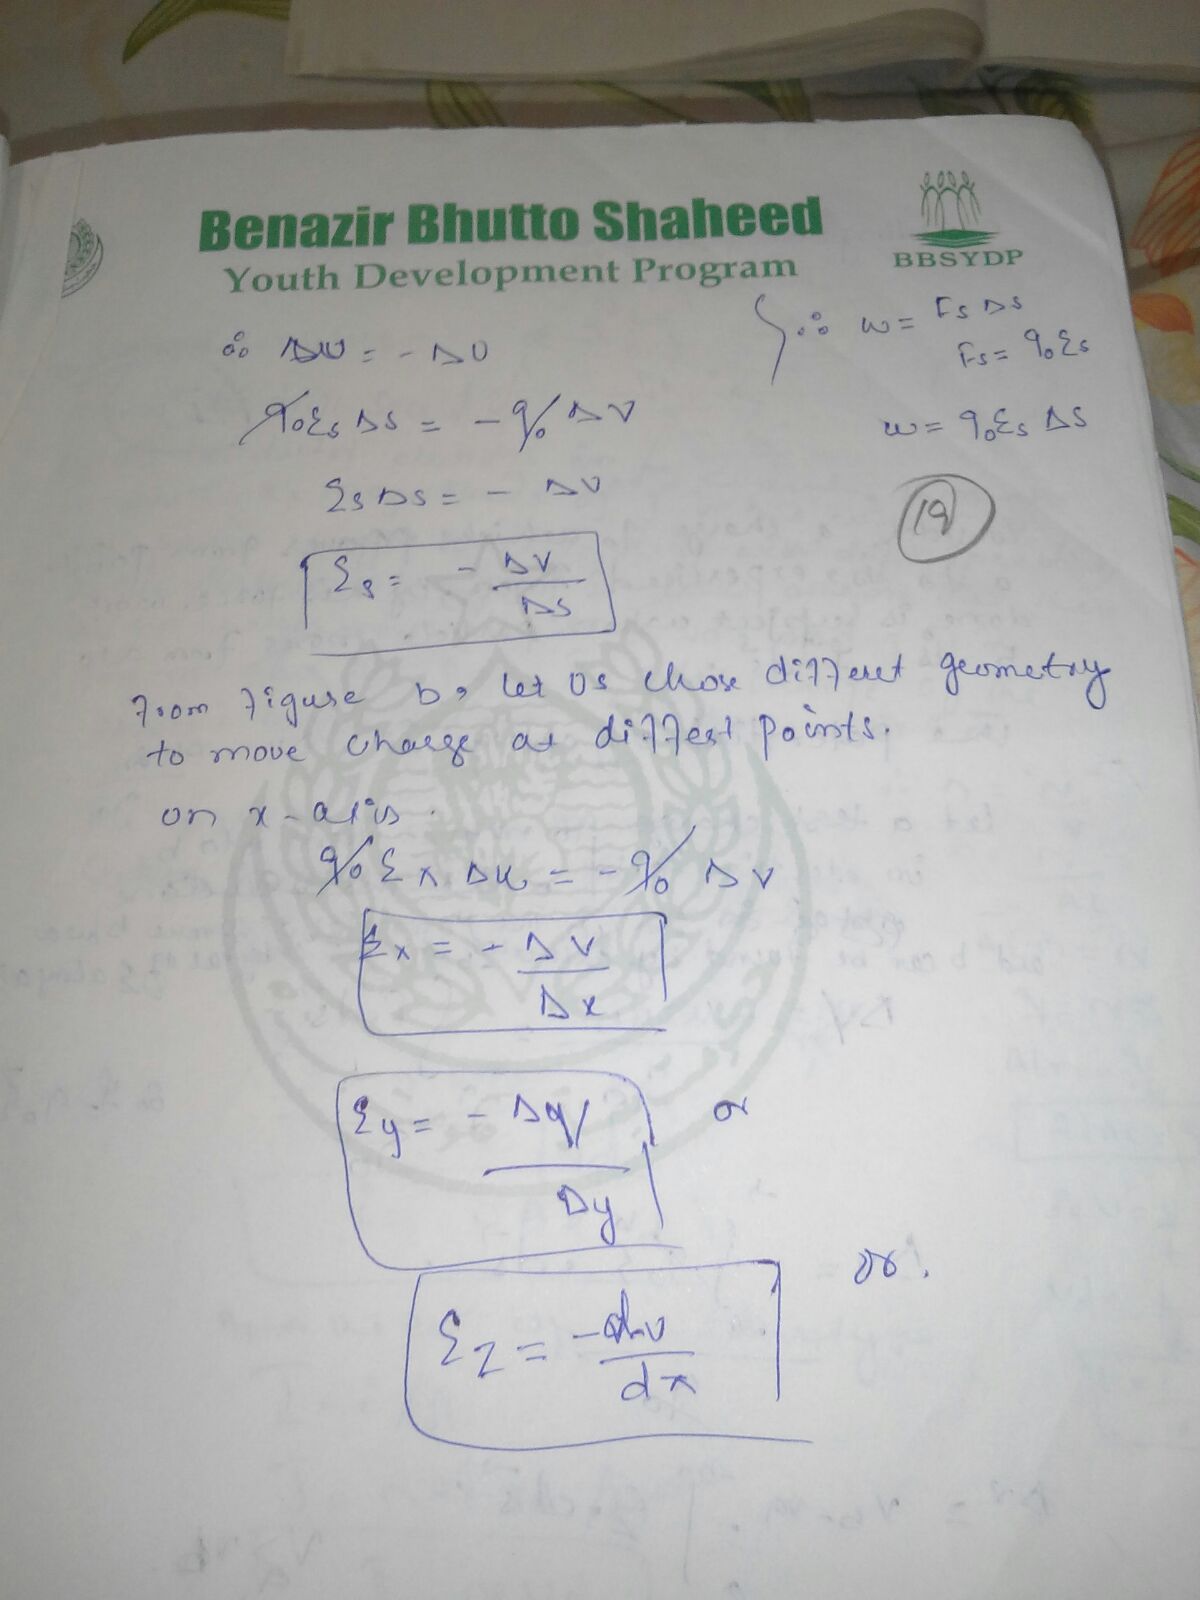 Benazir Bhutto Shaheed
Youth Development Program
BBSYDP
∴ ΔW = - ΔU
q₀Es ΔS = - q₀ ΔV
Es ΔS = - ΔV
Es = - ΔV / ΔS
} ∴ W = Fs ΔS
Fs = q₀Es
W = q₀Es ΔS
19
From Figure b, let us chose differet geometry
to move charge at differet points.
on x-axis.
q₀ Ex Δx = - q₀ ΔV
Ex = - ΔV / Δx
Ey = - ΔV / Δy or
Ez = - dv / dx or.